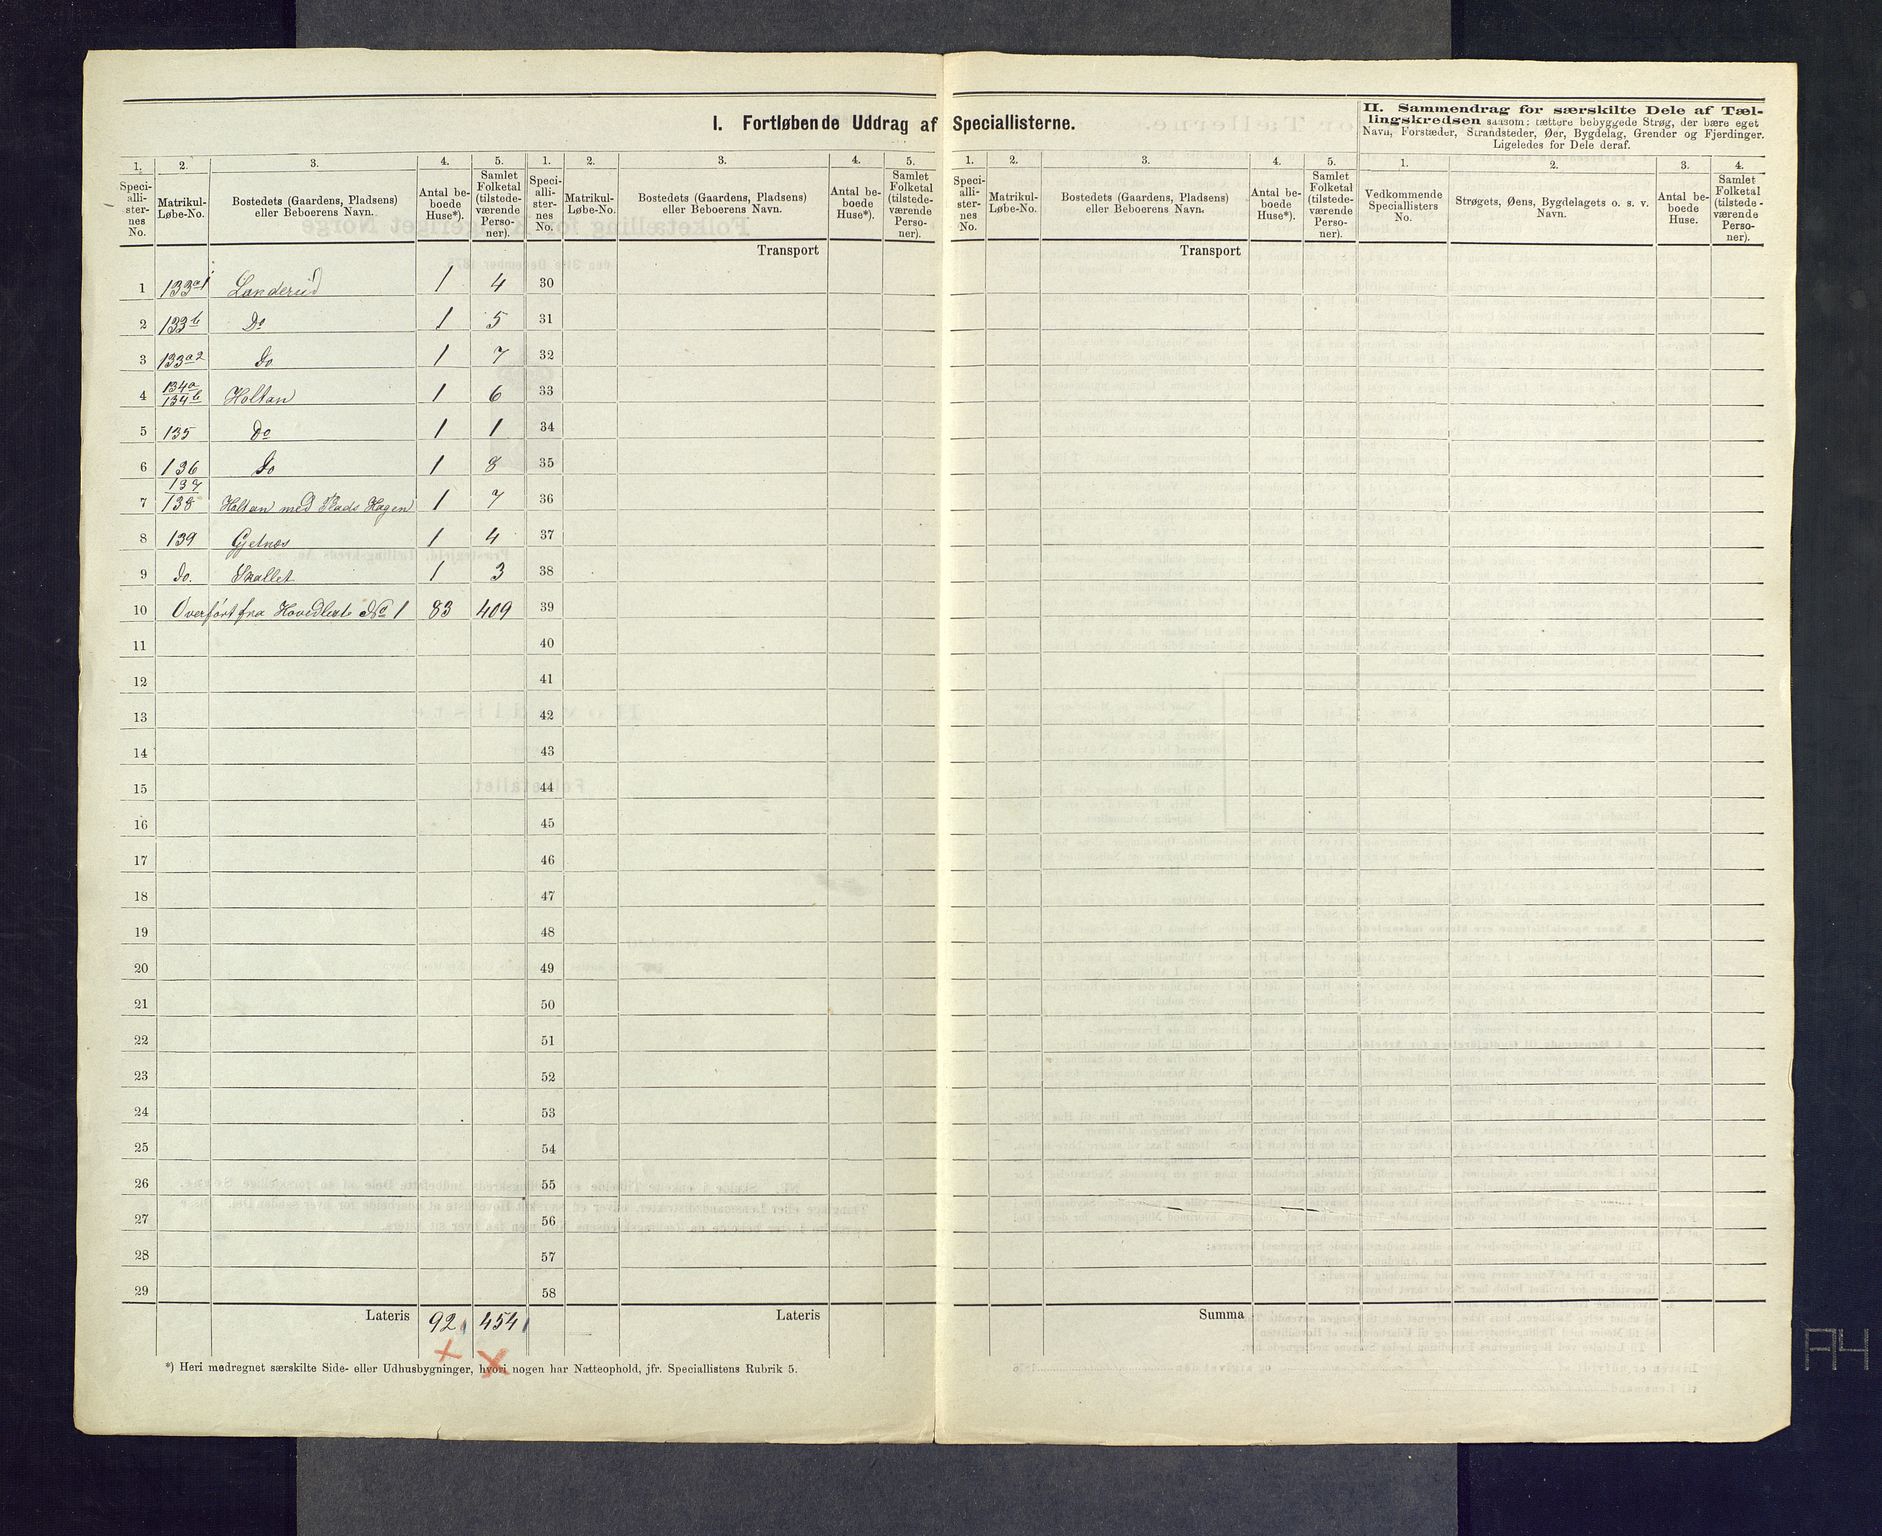 I. Fortløbende Uddrag af Speciallisterne.
II. Sammendrag for særskilte Dele af Tællingskredsen saasom: tættere bebyggede Strøg, der bære eget
Navn, Forstæder, Strandsteder, Øer, Bygdelag, Grender og Fjerdinger.
Ligeledes for Dele deraf.
1. 2. 3. 4. 5. 1. 2. 3. 4. 5. 1. 2. 3. 4. 5. 1. 2. 3. 4.
Speciallisternes No. Matrikul-Løbe-No. Bostedets (Gaardens, Pladsens) eller Beboerens Navn. Antal beboede Huse*). Samlet Folketal (tilstedeværende Personer).
Speciallisternes No. Matrikul-Løbe-No. Bostedets (Gaardens, Pladsens) eller Beboerens Navn. Antal beboede Huse*). Samlet Folketal (tilstedeværende Personer).
Speciallisternes No. Matrikul-Løbe-No. Bostedets (Gaardens, Pladsens) eller Beboerens Navn. Antal beboede Huse*). Samlet Folketal (tilstedeværende Personer).
Vedkommende Speciallisters No. Strøgets, Øens, Bygdelagets o. s. v. Navn. Antal beboede Huse. Samlet Folketal (tilstedeværende Personer).
Transport Transport
1 133a1 Landerud 1 4 30
2 133b Do 1 5 31
3 133a2 Do 1 7 32
4 134a 134b Holtan 1 6 33
5 135 Do 1 1 34
6 136 Do 1 8 35
7 137 138 Holtan med Plads Hagen 1 7 36
8 139 Gjelnæs 1 4 37
9 do. Skallet 1 3 38
10 Overført fra Hovedliste No 1 83 409 39
11 40
12 41
13 42
14 43
15 44
16 45
17 46
18 47
19 48
20 49
21 50
22 51
23 52
24 53
25 54
26 55
27 56
28 57
29 58
Lateris 92 454 Lateris Summa
*) Heri medregnet særskilte Side- eller Udhusbygninger, hvori nogen har Natteophold, jfr. Speciallistens Rubrik 5.
A4